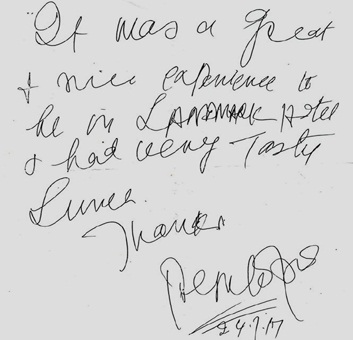 "It was a Great
& nice experience to
be in LANDMARK Hotel
& had very Tasty
Lunch.
Thanks
24.7.17